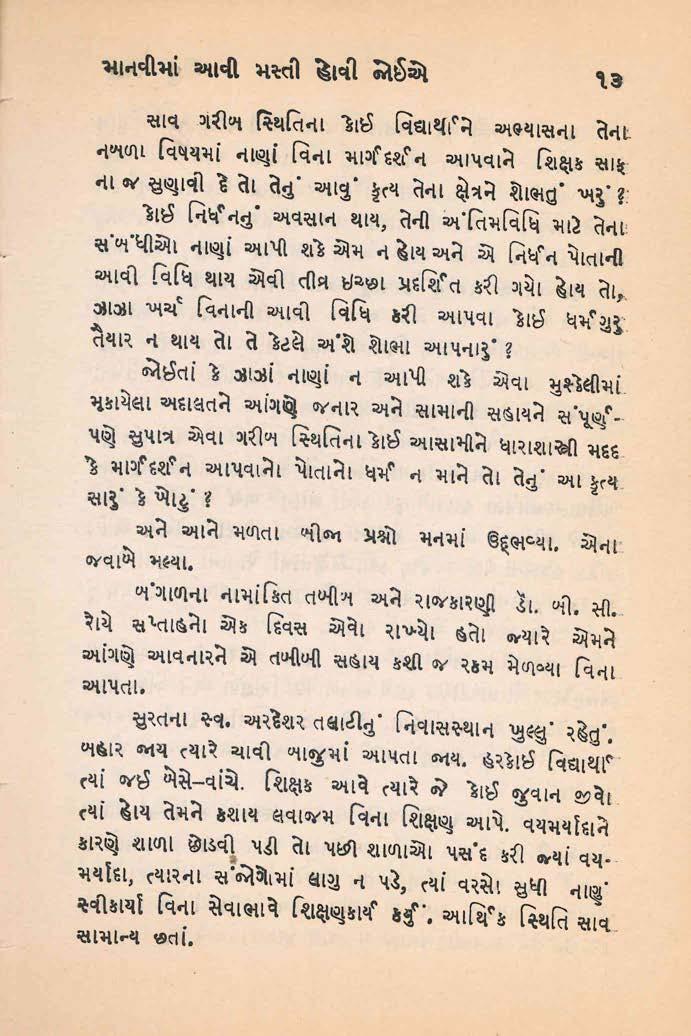 માનવીમાં આવી મસ્તી હોવી જોઈએ ૧૩
સાવ ગરીબ સ્થિતિના કોઈ વિદ્યાર્થીને અભ્યાસના તેના
નબળા વિષયમાં નાણાં વિના માર્ગદર્શન આપવાને શિક્ષક સાફ
ના જ સુણાવી દે તો તેનું આવું કૃત્ય તેના ક્ષેત્રને શોભતું ખરું ?
કોઈ નિર્ધનનું અવસાન થાય, તેની અંતિમવિધિ માટે તેના
સંબંધીઓ નાણાં આપી શકે એમ ન હોય અને એ નિર્ધન પોતાની
આવી વિધિ થાય એવી તીવ્ર ઇચ્છા પ્રદર્શિત કરી ગયો હોય તો,
ઝાઝા ખર્ચ વિનાની આવી વિધિ કરી આપવા કોઈ ધર્મગુરુ
તૈયાર ન થાય તો તે કેટલે અંશે શોભા આપનારું ?
જોઈતાં કે ઝાઝાં નાણાં ન આપી શકે એવા મુશ્કેલીમાં
મૂકાયેલા અદાલતને આંગણે જનાર અને સામાની સહાયને સંપૂર્ણ-
પણે સુપાત્ર એવા ગરીબ સ્થિતિના કોઈ આસામીને ધારાશાસ્ત્રી મદદ
કે માર્ગદર્શન આપવાનો પોતાનો ધર્મ ન માને તો તેનું આ કૃત્ય
સારું કે ખોટું ?
અને આને મળતા બીજા પ્રશ્નો મનમાં ઉદ્દભવ્યા. એના
જવાબે મલ્યા.
બંગાળના નામાંકિત તબીબ અને રાજકારણી ડૉ. બી. સી.
રોયે સપ્તાહનો એક દિવસ એવો રાખ્યો હતો જ્યારે એમને
આંગણે આવનારને એ તબીબી સહાય કશી જ રકમ મેળવ્યા વિના
આપતા.
સુરતના સ્વ. અરદેશર તલાટીનું નિવાસસ્થાન ખુલ્લું રહેતું.
બહાર જાય ત્યારે ચાવી બાજુમાં આપતા જાય. હરકોઈ વિદ્યાર્થી
ત્યાં જઈ બેસે–વાંચે. શિક્ષક આવે ત્યારે જે કોઈ જુવાન જીવો
ત્યાં હોય તેમને કશાય લવાજમ વિના શિક્ષણ આપે. વયમર્યાદાને
કારણે શાળા છોડવી પડી તો પછી શાળાઓ પસંદ કરી જ્યાં વય-
મર્યાદા, ત્યારના સંજોગોમાં લાગુ ન પડે, ત્યાં વરસો સુધી નાણું
સ્વીકાર્યા વિના સેવાભાવે શિક્ષણકાર્ય કર્યું. આર્થિક સ્થિતિ સાવ
સામાન્ય છતાં.